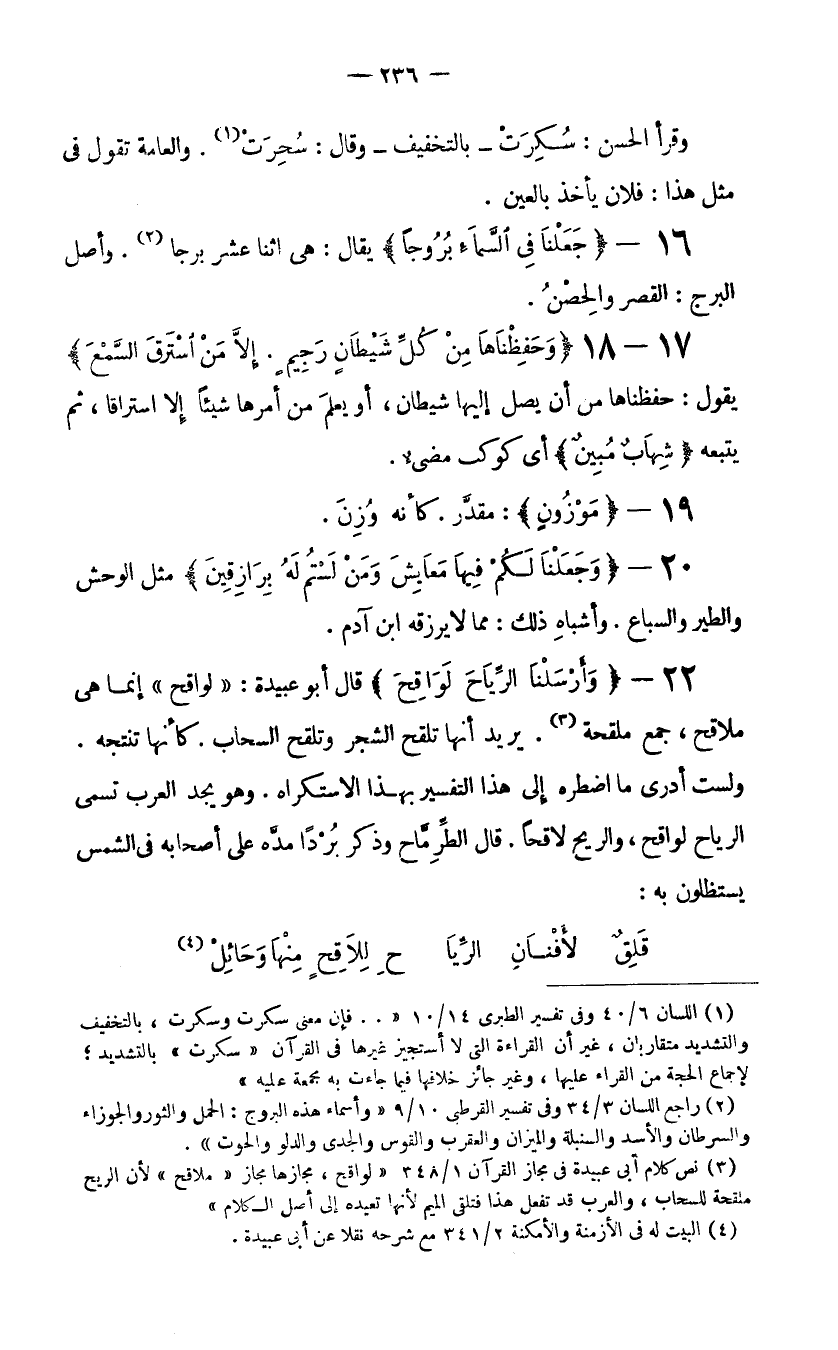 — ٢٣٦ —
وقرأ الحسن : سُكِرَتْ – بالتخفيف – وقال : سُحِرَتْ (١) . والعامة تقول فى
مثل هذا : فلان يأخذ بالعين .
١٦ — ﴿ جَعَلْنَا فِى ٱلسَّمَاءِ بُرُوجاً ﴾ يقال : هى اثنا عشر برجا (٢) . وأصل
البرج : القصر والحِصْنُ .
١٧ — ١٨ ﴿ وَحَفِظْنَاهَا مِنْ كُلِّ شَيْطَانٍ رَجِيمٍ . إِلاَّ مَنْ ٱسْتَرَقَ السَّمْعَ ﴾
يقول : حفظناها من أن يصل إليها شيطان ، أو يعلمَ من أمرها شيئاً إلا استراقا ، ثم
يتبعه ﴿ شِهَابٌ مُبِينٌ ﴾ أى كوكب مضىء .
١٩ — ﴿ مَوْزُونٍ ﴾ : مقدَّر . كأنه وُزِنَ .
٢٠ — ﴿ وَجَعَلْنَا لَكُمْ فِيهَا مَعَايِشَ وَمَنْ لَسْتُمْ لَهُ بِرَازِقِينَ ﴾ مثل الوحش
والطير والسباع . وأشباهِ ذلك : مما لا يرزقه ابن آدم .
٢٢ — ﴿ وَأَرْسَلْنَا الرِّيَاحَ لَوَاقِحَ ﴾ قال أبو عبيدة : « لواقح » إنما هى
ملاقح ، جمع ملقحة (٣) . يريد أنها تلقح الشجر وتلقح السحاب . كأنها تنتجه .
ولست أدرى ما اضطره إلى هذا التفسير بهذا الاستكراه . وهو يجد العرب تسمى
الرياح لواقح ، والريح لاقحاً . قال الطِّرِمَّاح وذكر بُرْدًا مدَّه على أصحابه فى الشمس
يستظلون به :
قَلِقٌ لأَفْنَانِ الرِّيَا حِ لِلاَقِحٍ مِنْهَا وَحَائِلْ (٤)
(١) اللسان ٤٠/٦ وفى تفسير الطبرى ١٠/١٤ « . . فإن معنى سكرت وسكرت ، بالتخفيف
والتشديد متقاربان ، غير أن القراءة التى لا أستجيز غيرها فى القرآن « سكرت » بالتشديد ؛
لإجماع الحجة من القراء عليها ، وغير جائز خلافها فيما جاءت به مجمعة عليه »
(٢) راجع اللسان ٣٤/٣ وفى تفسير القرطبى ٩/١٠ « وأسماء هذه البروج : الحمل والثور والجوزاء
والسرطان والأسد والسنبلة والميزان والعقرب والقوس والجدى والدلو والحوت » .
(٣) نص كلام أبى عبيدة فى مجاز القرآن ٣٤٨/١ « لواقح ، مجازها مجاز « ملاقح » لأن الريح
ملقحة للسحاب ، والعرب قد تفعل هذا فتلقى الميم لأنها تعيده إلى أصل الكلام »
(٤) البيت له فى الأزمنة والأمكنة ٣٤١/٢ مع شرحه نقلا عن أبى عبيدة .